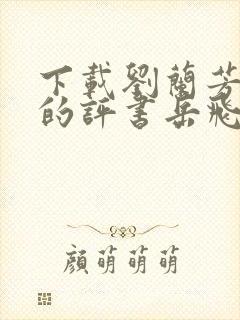 下載劉蘭芳
的評書岳飛
顏萌萌萌